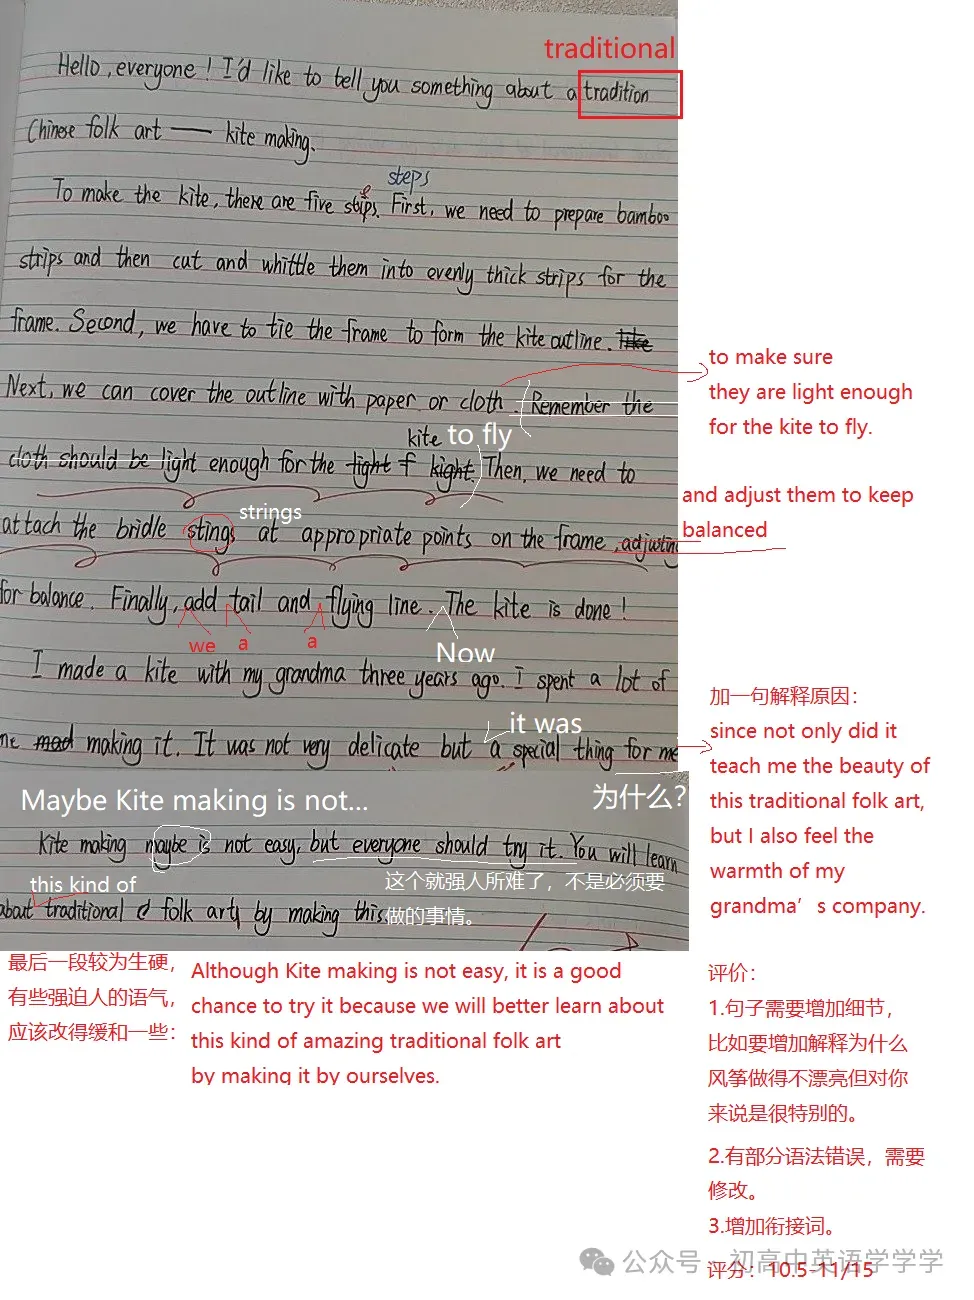 traditional
Hello, everyone! I'd like to tell you something about a tradition
Chinese folk art — kite making.
steps
To make the kite, there are five stips. First, we need to prepare bamboo
e
strips and then cut and whittle them into evenly thick strips for the
frame. Second, we have to tie the frame to form the kite outline. like
to make sure
they are light enough
for the kite to fly.
Next, we can cover the outline with paper or cloth. Remember the
kite to fly
cloth should be light enough for the tight f kight. Then, we need to
and adjust them to keep
balanced
strings
attach the bridle stings at appropriate points on the frame, adjusting
for balance. Finally, add tail and flying line. The kite is done!
we a a
Now
I made a kite with my grandma three years ago. I spent a lot of
it was
me mad making it. It was not very delicate but a special thing for me
加一句解释原因：
since not only did it
teach me the beauty of
this traditional folk art,
but I also feel the
warmth of my
grandma's company.
Maybe Kite making is not...
为什么?
Kite making maybe is not easy, but everyone should try it. You will learn
this kind of
这个就强人所难了，不是必须要
做的事情。
about traditional folk art by making this
最后一段较为生硬，
有些强迫人的语气，
应该改得缓和一些：
Although Kite making is not easy, it is a good
chance to try it because we will better learn about
this kind of amazing traditional folk art
by making it by ourselves.
评价：
1.句子需要增加细节，
比如要增加解释为什么
风筝做得不漂亮但对你
来说是很特别的。
2.有部分语法错误，需要
修改。
3.增加衔接词。
公众号 初高中英语学学学
评分：10.5-11/15